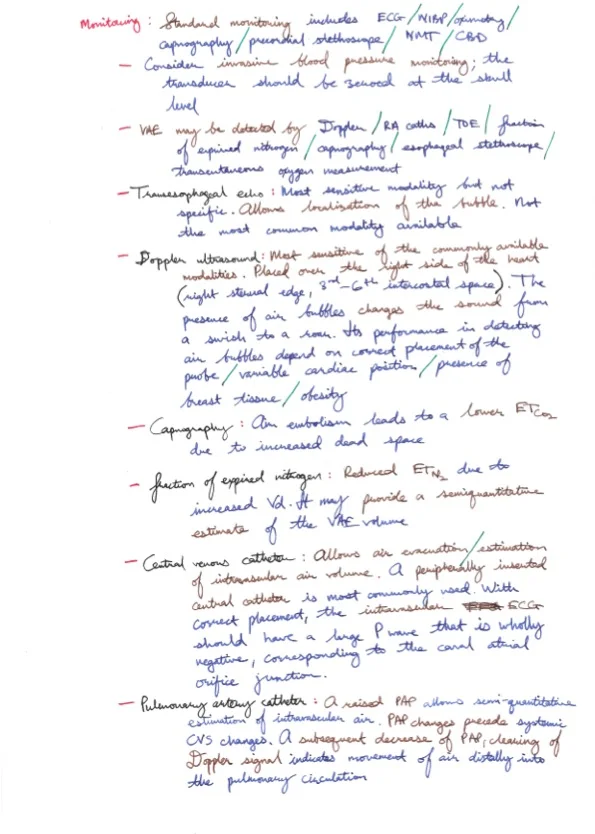 Monitoring : Standard monitoring includes ECG / NIBP / oximetry /
capnography / precordial stethoscope / NMT / CBD
– Consider invasive blood pressure monitoring; the
transducer should be zeroed at the skull
level
– VAE may be detected by Doppler / RA caths / TOE / fraction
of expired nitrogen / capnography / esophageal stethoscope /
transcutaneous oxygen measurement
– Transesophageal echo : Most sensitive modality but not
specific. Allows localisation of the bubble. Not
the most common modality available
– Doppler ultrasound : Most sensitive of the commonly available
modalities. Placed over the right side of the heart
(right sternal edge, 3rd – 6th intercostal space). The
presence of air bubbles changes the sound from
a swish to a roar. Its performance in detecting
air bubbles depend on correct placement of the
probe / variable cardiac position / presence of
breast tissue / obesity
– Capnography : Air embolism leads to a lower ETCO2
due to increased dead space
– fraction of expired nitrogen : Reduced ETN2 due to
increased Vd. It may provide a semiquantitative
estimate of the VAE volume
– Central venous catheter : Allows air evacuation / estimation
of intravascular air volume. A peripherally inserted
central catheter is most commonly used. With
correct placement, the intravascular ECG
should have a large P wave that is wholly
negative, corresponding to the caval atrial
orifice junction.
– Pulmonary artery catheter : A raised PAP allows semi-quantitative
estimation of intravascular air. PAP changes precede systemic
CVS changes. A subsequent decrease of PAP, clearing of
Doppler signal indicates movement of air distally into
the pulmonary circulation